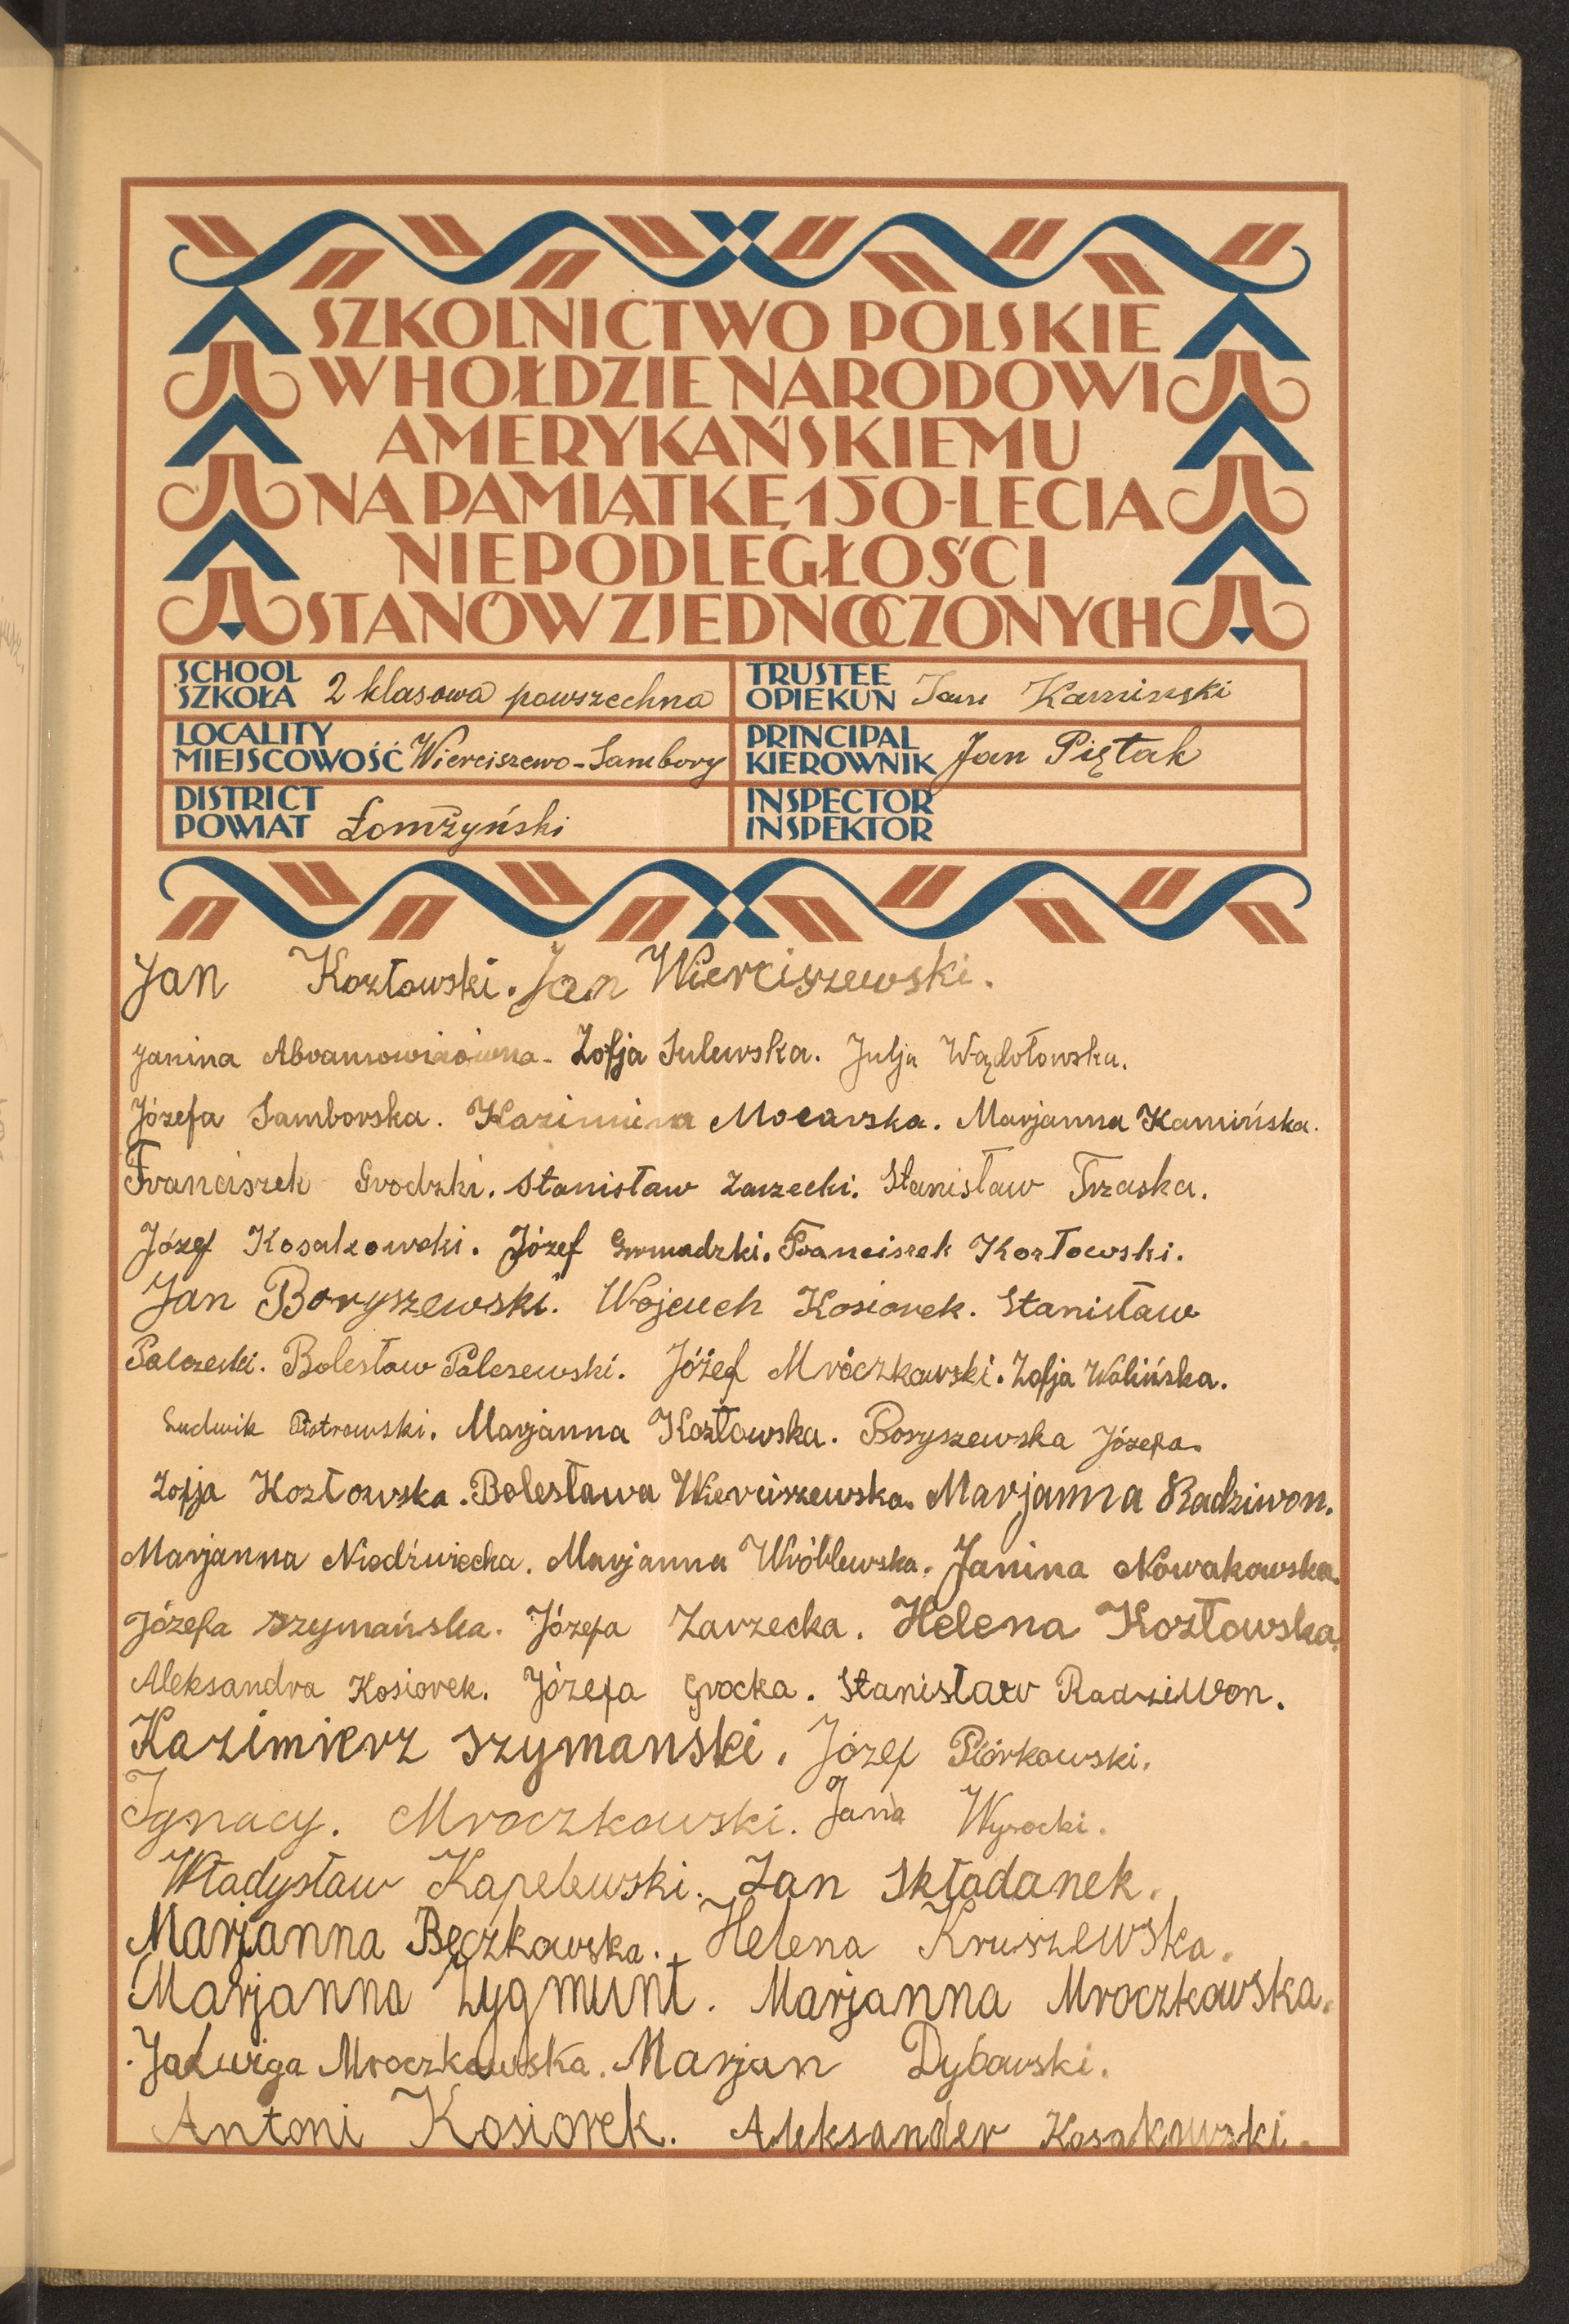 SZKOLNICTWO POLSKIE
W HOŁDZIE NARODOWI
AMERYKAŃSKIEMU
NA PAMIĄTKĘ 150-LECIA
NIEPODLEGŁOŚCI
STANÓW ZJEDNOCZONYCH
SCHOOL
SZKOŁA 2 klasowa powszechna
TRUSTEE
OPIEKUN Jan Kaminski
LOCALITY
MIEJSCOWOŚĆ Wierciszewo-Sambory
PRINCIPAL
KIEROWNIK Jan Piętak
DISTRICT
POWIAT Łomżyński
INSPECTOR
INSPEKTOR
Jan Kozłowski. Jan Wierciszewski.
Janina Abramowiczówna. Zofja Sulewska. Julja Wądołowska.
Józefa Samborska. Kazimiera Mocarska. Marjanna Kamińska.
Franciszek Grodzki. Stanisław Zarzecki. Stanisław Trzaska.
Józef Kosakowski. Józef Gromadzki. Franciszek Kozłowski.
Jan Boryszewski. Wojciech Kosiorek. Stanisław
Bolesław Palczewski. Józef Mroczkowski. Zofja Wolińska.
Ludwik Piotrowski. Marjanna Kozłowska. Boryszewska Józefa.
Zofja Kozłowska. Bolesława Wierciszewska. Marjanna Radziwon.
Marjanna Niedźwiecka. Marjanna Wróblewska. Janina Nowakowska.
Józefa Szymańska. Józefa Zarzecka. Helena Kozłowska.
Aleksandra Kosiorek. Józefa Grocka. Stanisław Radziwon.
Kazimierz Szymanski. Józef Piórkowski.
Ignacy. Mroczkowski. Jana Wysocki.
Władysław Kapelewski. Jan Składanek.
Marjanna Bęczkowska. Helena Kruszewska.
Marjanna Zygmunt. Marjanna Mroczkowska.
Jadwiga Mroczkowska. Marjan Dybowski.
Antoni Kosiorek. Aleksander Kosakowski.